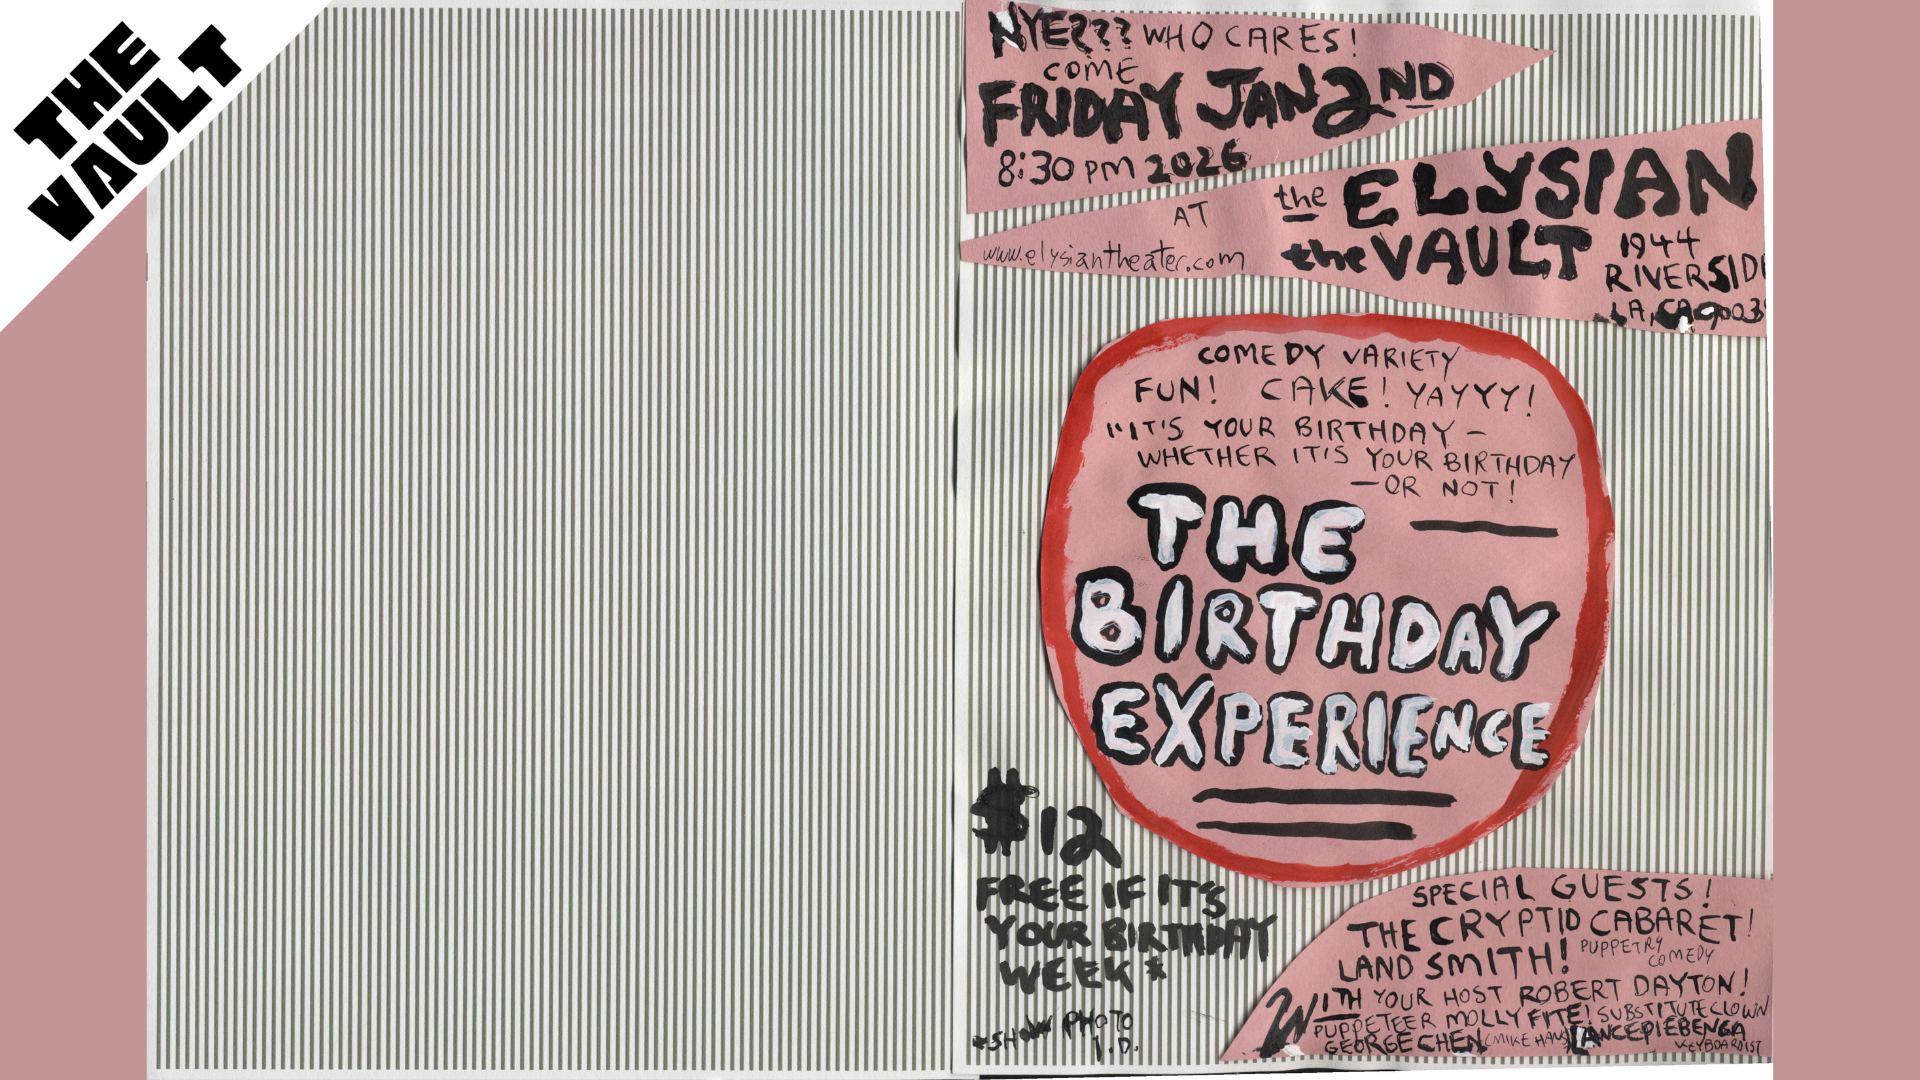 THE
VAULT
NYE??? WHO CARES!
COME
FRIDAY JAN 2ND
8:30 PM 2026
AT
the ELYSIAN
the VAULT
www.elysiantheater.com
1944
RIVERSIDE
LA, CA 9003
COMEDY VARIETY
FUN! CAKE! YAYYY!
"IT'S YOUR BIRTHDAY –
WHETHER IT'S YOUR BIRTHDAY
—OR NOT!
THE
BIRTHDAY
EXPERIENCE
$12
FREE IF IT'S
YOUR BIRTHDAY
WEEK *
*SHOW PHOTO
I.D.
SPECIAL GUESTS!
THE CRYPTID CABARET!
LAND SMITH! PUPPETRY
COMEDY
WITH YOUR HOST ROBERT DAYTON!
PUPPETEER MOLLY FITE! SUBSTITUTE CLOWN
GEORGE CHEN (MIKE HAUS) LANCE PIEBENGA
KEYBOARDIST